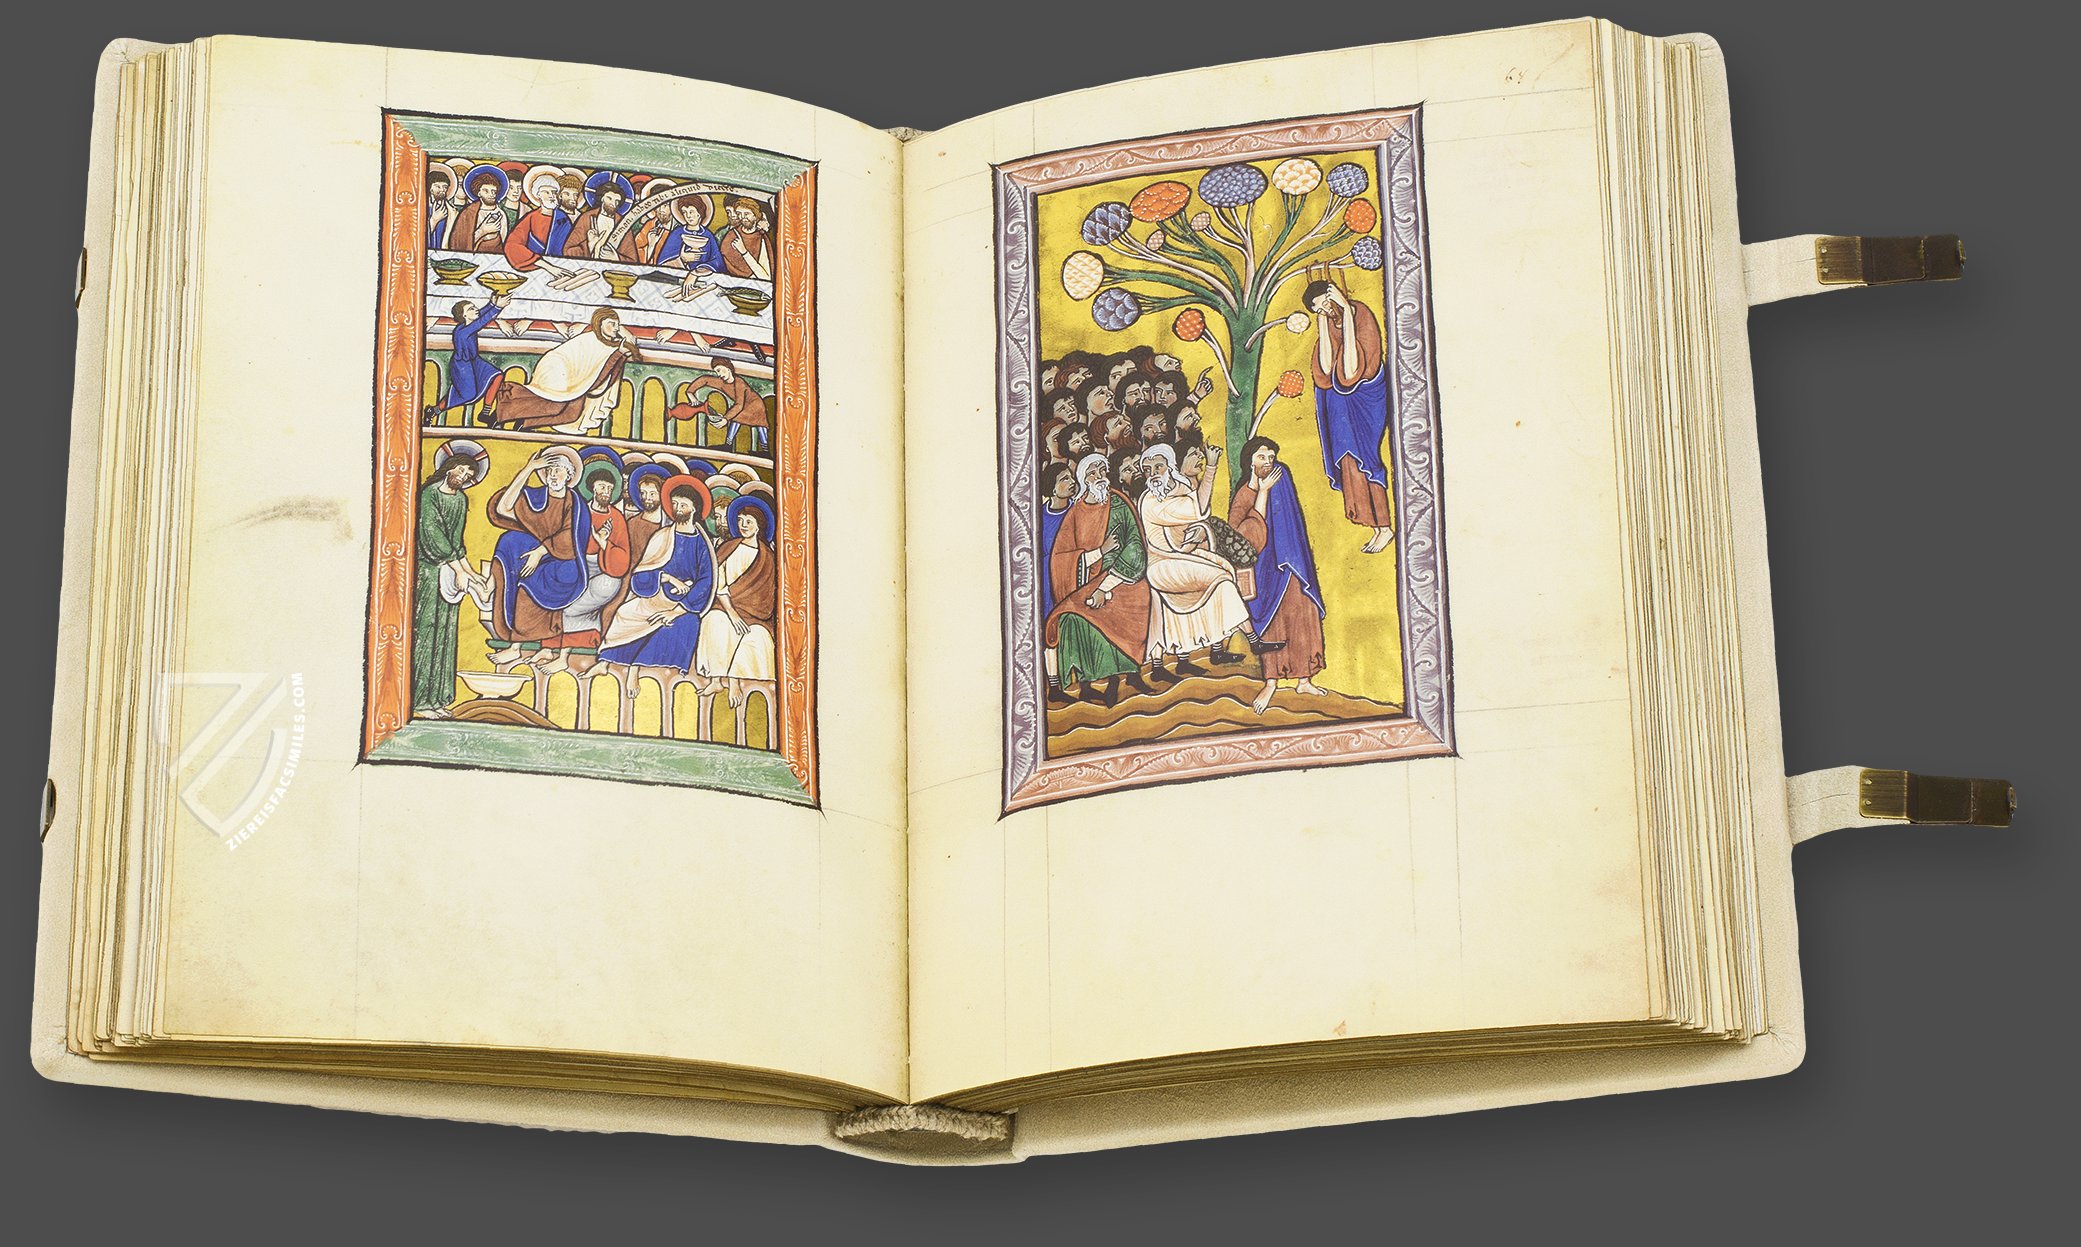 Simon habeo tibi aliquid dicere.
64
ZIEREISFACSIMILES.COM